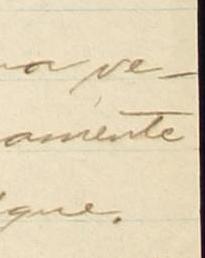 ra ve-
amente
igue.